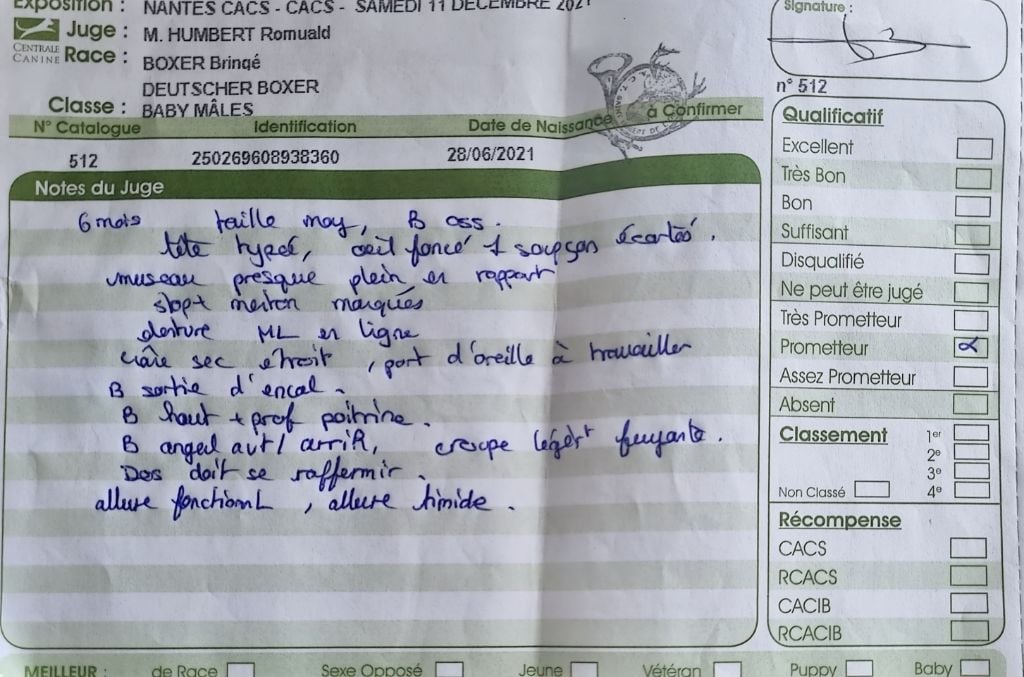 Exposition : NANTES CACS - CACS - SAMEDI 11 DECEMBRE 2021
Signature :
CENTRALE CANINE
Juge : M. HUMBERT Romuald
Race : BOXER Bringé
DEUTSCHER BOXER
Classe : BABY MÂLES
n° 512
N° Catalogue Identification Date de Naissance à Confirmer
512 250269608938360 28/06/2021
Notes du Juge
6 mois taille moy, B oss.
tête typée, œil foncé 1 soupçon écartés.
museau presque plein en rapport
stop + menton marqués
denture ML en ligne
crâne sec étroit, port d'oreille à travailler
B sortie d'encol.
B haut + prof poitrine.
B angul avt / arriR, croupe légèrt fuyante.
Dos doit se raffermir.
allure fonctionL, allure timide.
Qualificatif
Excellent
Très Bon
Bon
Suffisant
Disqualifié
Ne peut être jugé
Très Prometteur
Prometteur
Assez Prometteur
Absent
Classement 1er
2e
3e
Non Classé 4e
Récompense
CACS
RCACS
CACIB
RCACIB
MEILLEUR : de Race Sexe Opposé Jeune Vétéran Puppy Baby